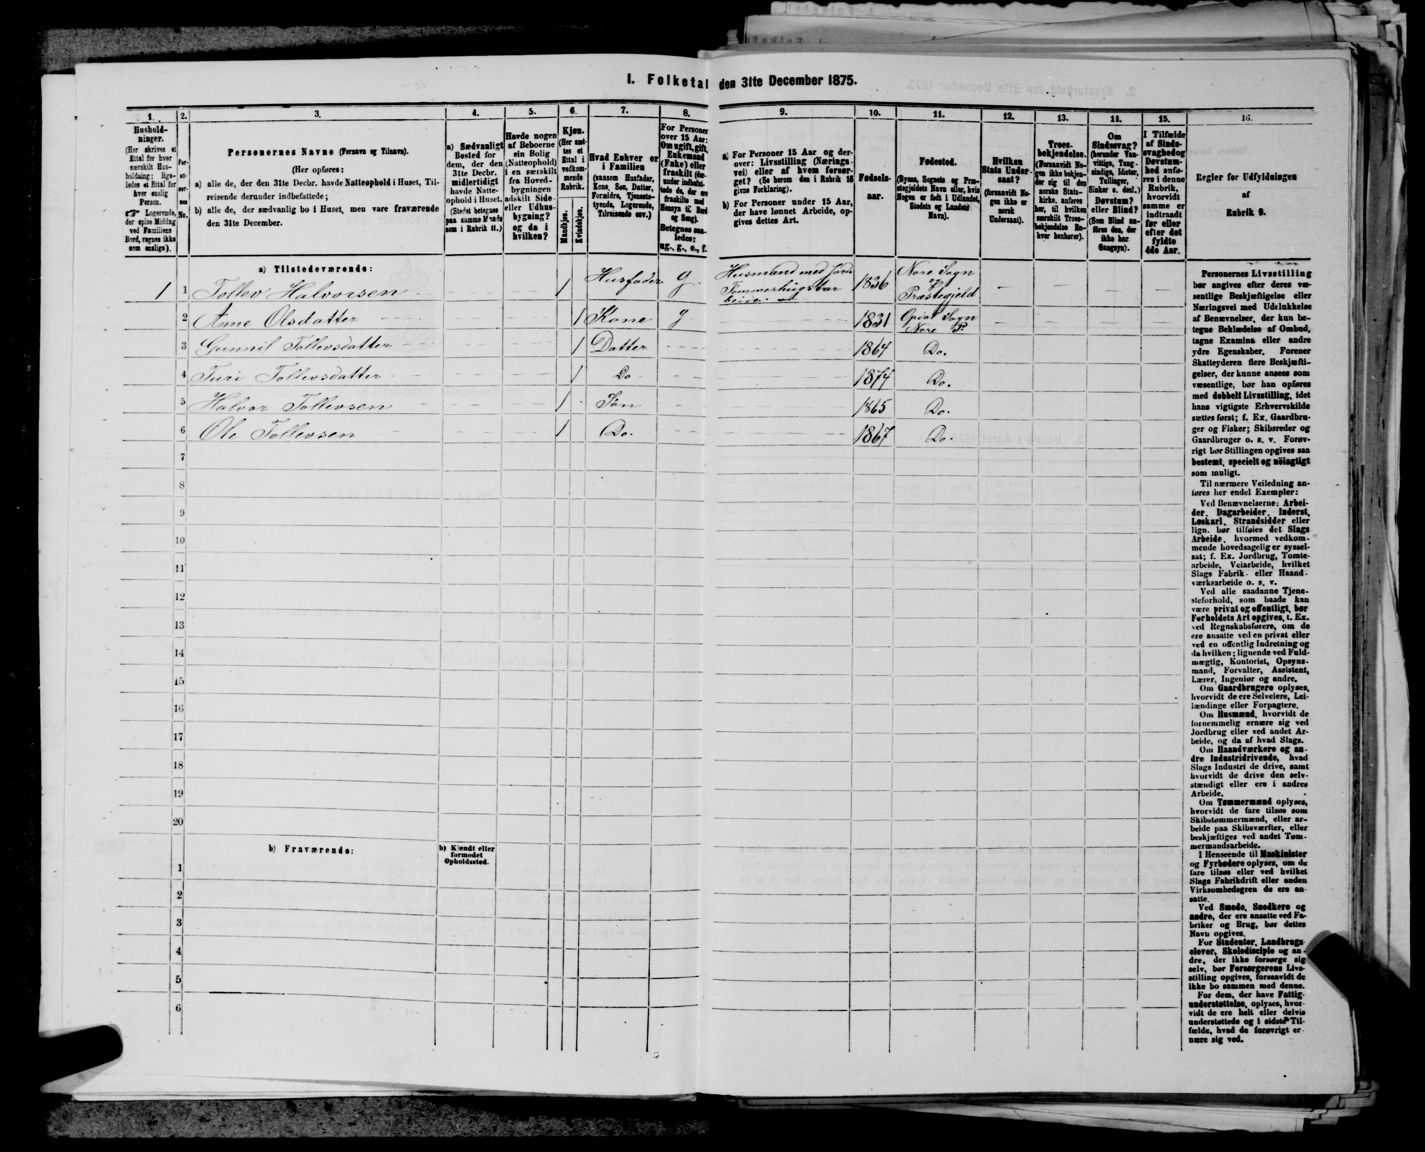 I. Folketal den 31te December 1875.
1. 2. 3. 4. 5. 6. 7. 8. 9. 10. 11. 12. 13. 14. 15. 16.
Hushold-
ninger.
(Her skrives et
Ettal for hver
særskilt Hus-
holdning; lige-
ledes et Ettal for
hver enslig
Person.
☞ Logerende,
der spise Middag
ved Familiens
Bord, regnes ikke
som enslige).
Per-
so-
ner-
nes
No.
Personernes Navne (Fornavn og Tilnavn).
(Her opføres:
a) alle de, der den 31te Decbr. havde Natteophold i Huset, Til-
reisende derunder indbefattede;
b) alle de, der sædvanlig bo i Huset, men vare fraværende
den 31te December.
a) Sædvanligt
Bosted for
dem, der den
31te Decbr.
midlertidigt
havde Natte-
ophold i Huset.
(Stedet betegnes
paa samme Maade
som i Rubrik 11.)
Havde nogen
af Beboerne
sin Bolig
(Natteophold)
i en særskilt
fra Hoved-
bygningen
adskilt Side-
eller Udhus-
bygning?
og da i
hvilken?
Kjøn.
(Her sæt-
tes et
Ettal i
vedkom-
mende
Rubrik.
Mandkjøn.
Kvindekjøn.
Hvad Enhver er
i Familien
(saasom Husfader,
Kone, Søn, Datter,
Forældre, Tjeneste-
tyende, Logerende,
Tilreisende osv.)
For Personer
over 15 Aar:
Om ugift, gift,
Enkemand
(Enke) eller
fraskilt (der-
under indbefat-
tede de, der ere
fraskilte med
Hensyn til Bord
og Seng).
Betegnes saa-
ledes:
ug., g., e., f.
a) For Personer 15 Aar og der-
over: Livsstilling (Nærings-
vei) eller af hvem forsør-
get? (Se herom den i Rubrik 16
givne Forklaring).
b) For Personer under 15 Aar,
der have lønnet Arbeide, op-
gives dettes Art.
Fødsels-
aar.
Fødested.
(Byens, Sognets og Præ-
stegjeldets Navn eller, hvis
Nogen er født i Udlandet,
Stedets og Landets
Navn).
Hvilken
Stats Under-
saat?
(forsaavidt No-
gen ikke er
norsk
Undersaat).
Troes-
bekjendelse.
(Forsaavidt No-
gen ikke bekjen-
der sig til den
norske Stats-
kirke, anføres
her, til hvilken
særskilt Troes-
bekjendelse En-
hver henhører).
Om
Sindssvag?
(herunder Van-
vittige, Tung-
sindige, Idioter,
Tullinger,
Sinker o. desl.)
Døvstum?
eller Blind?
(Som Blind an-
føres den, der
ikke har
Gangsyn).
I Tilfælde
af Sinds-
svaghed og
Døvstum-
hed anfø-
res i denne
Rubrik,
hvorvidt
samme er
indtraadt
før eller
efter det
fyldte
4de Aar.
Regler for Udfyldningen
af
Rubrik 9.
a) Tilstedeværende:
1 1 Tollev Halvorsen 1 Husfader g. Husmand med Jord 1836 Nore Sogn
Præstegjeld
2 Anne Olsdatter 1 Kone g 1831 Opdal Sogn
Nore P
3 Gunnil Tollevsdatter 1 Datter 1864 Do.
4 Turi Tollevsdatter 1 Do 1874 Do.
5 Halvor Tollevsen 1 Søn 1865 Do.
6 Ole Tollevsen 1 Do. 1867 Do.
7
8
9
10
11
12
13
14
15
16
17
18
19
20
b) Fraværende:
b) Kjendt eller
formodet
Opholdssted.
1
2
3
4
5
6
Personernes Livsstilling
bør angives efter deres væ-
sentlige Beskjæftigelse eller
Næringsvei med Udelukkelse
af Benævnelser, der kun be-
tegne Beklædelse af Ombud,
tagne Examina eller andre
ydre Egenskaber. Forener
Skatteyderen flere Beskjæfti-
gelser, der kunne ansees som
væsentlige, bør han opføres
med dobbelt Livsstilling, idet
hans vigtigste Erhvervskilde
sættes først; f. Ex. Gaardbru-
ger og Fisker; Skibsreder og
Gaardbruger o. s. v. Forøv-
rigt bør Stillingen opgives saa
bestemt, specielt og nöiagtigt
som muligt.
Til nærmere Veiledning an-
føres her endel Exempler:
Ved Benævnelserne: Arbei-
der, Dagarbeider, Inderst,
Løskarl, Strandsidder eller
lign. bør tilføies det Slags
Arbeide, hvormed vedkom-
mende hovedsagelig er syssel-
sat; f. Ex. Jordbrug, Tomte-
arbeide, Veiarbeide, hvilket
Slags Fabrik- eller Haand-
værksarbeide o. s. v.
Ved alle saadanne Tjene-
steforhold, som baade kan
være privat og offentligt, bør
Forholdets Art opgives, t. Ex.
ved Regnskabsførere, om de
ere ansatte ved en privat eller
ved en offentlig Indretning og
da hvilken; lignende ved Fuld-
mægtig, Kontorist, Opsyns-
mand, Forvalter, Assistent,
Lærer, Ingeniør og andre.
Om Gaardbrugere oplyses,
hvorvidt de ere Selveiere, Lei-
lændinge eller Forpagtere.
Om Husmænd, hvorvidt de
fornemmelig ernære sig ved
Jordbrug eller ved andet Ar-
beide, og da af hvad Slags.
Om Haandværkere og an-
dre Industridrivende, hvad
Slags Industri de drive, samt
hvorvidt de drive den selv-
stændigt eller ere i andres
Arbeide.
Om Tømmermænd oplyses,
hvorvidt de fare tilsøs som
Skibstømmermænd, eller ar-
beide paa Skibsværfter, eller
beskjæftiges ved andet Tøm-
mermandsarbeide.
I Henseende til Maskinister
og Fyrbødere oplyses, om de
fare tilsøs eller ved hvilket
Slags Fabrikdrift eller anden
Virksomhedsgren de ere an-
satte.
Ved Smede, Snedkere og
andre, der ere ansatte ved Fa-
briker og Brug, bør dettes
Navn opgives.
For Studenter, Landbrugs-
elever, Skoledisciple og an-
dre, der ikke forsørge sig
selv, bør Forsørgerens Livs-
stilling opgives, forsaavidt de
ikke bo sammen med denne.
For dem, der have Fattig-
understøttelse, oplyses, hvor-
vidt de ere helt eller delvis
understøttede og i sidste Til-
fælde, hvad de forøvrigt er-
nære sig ved.